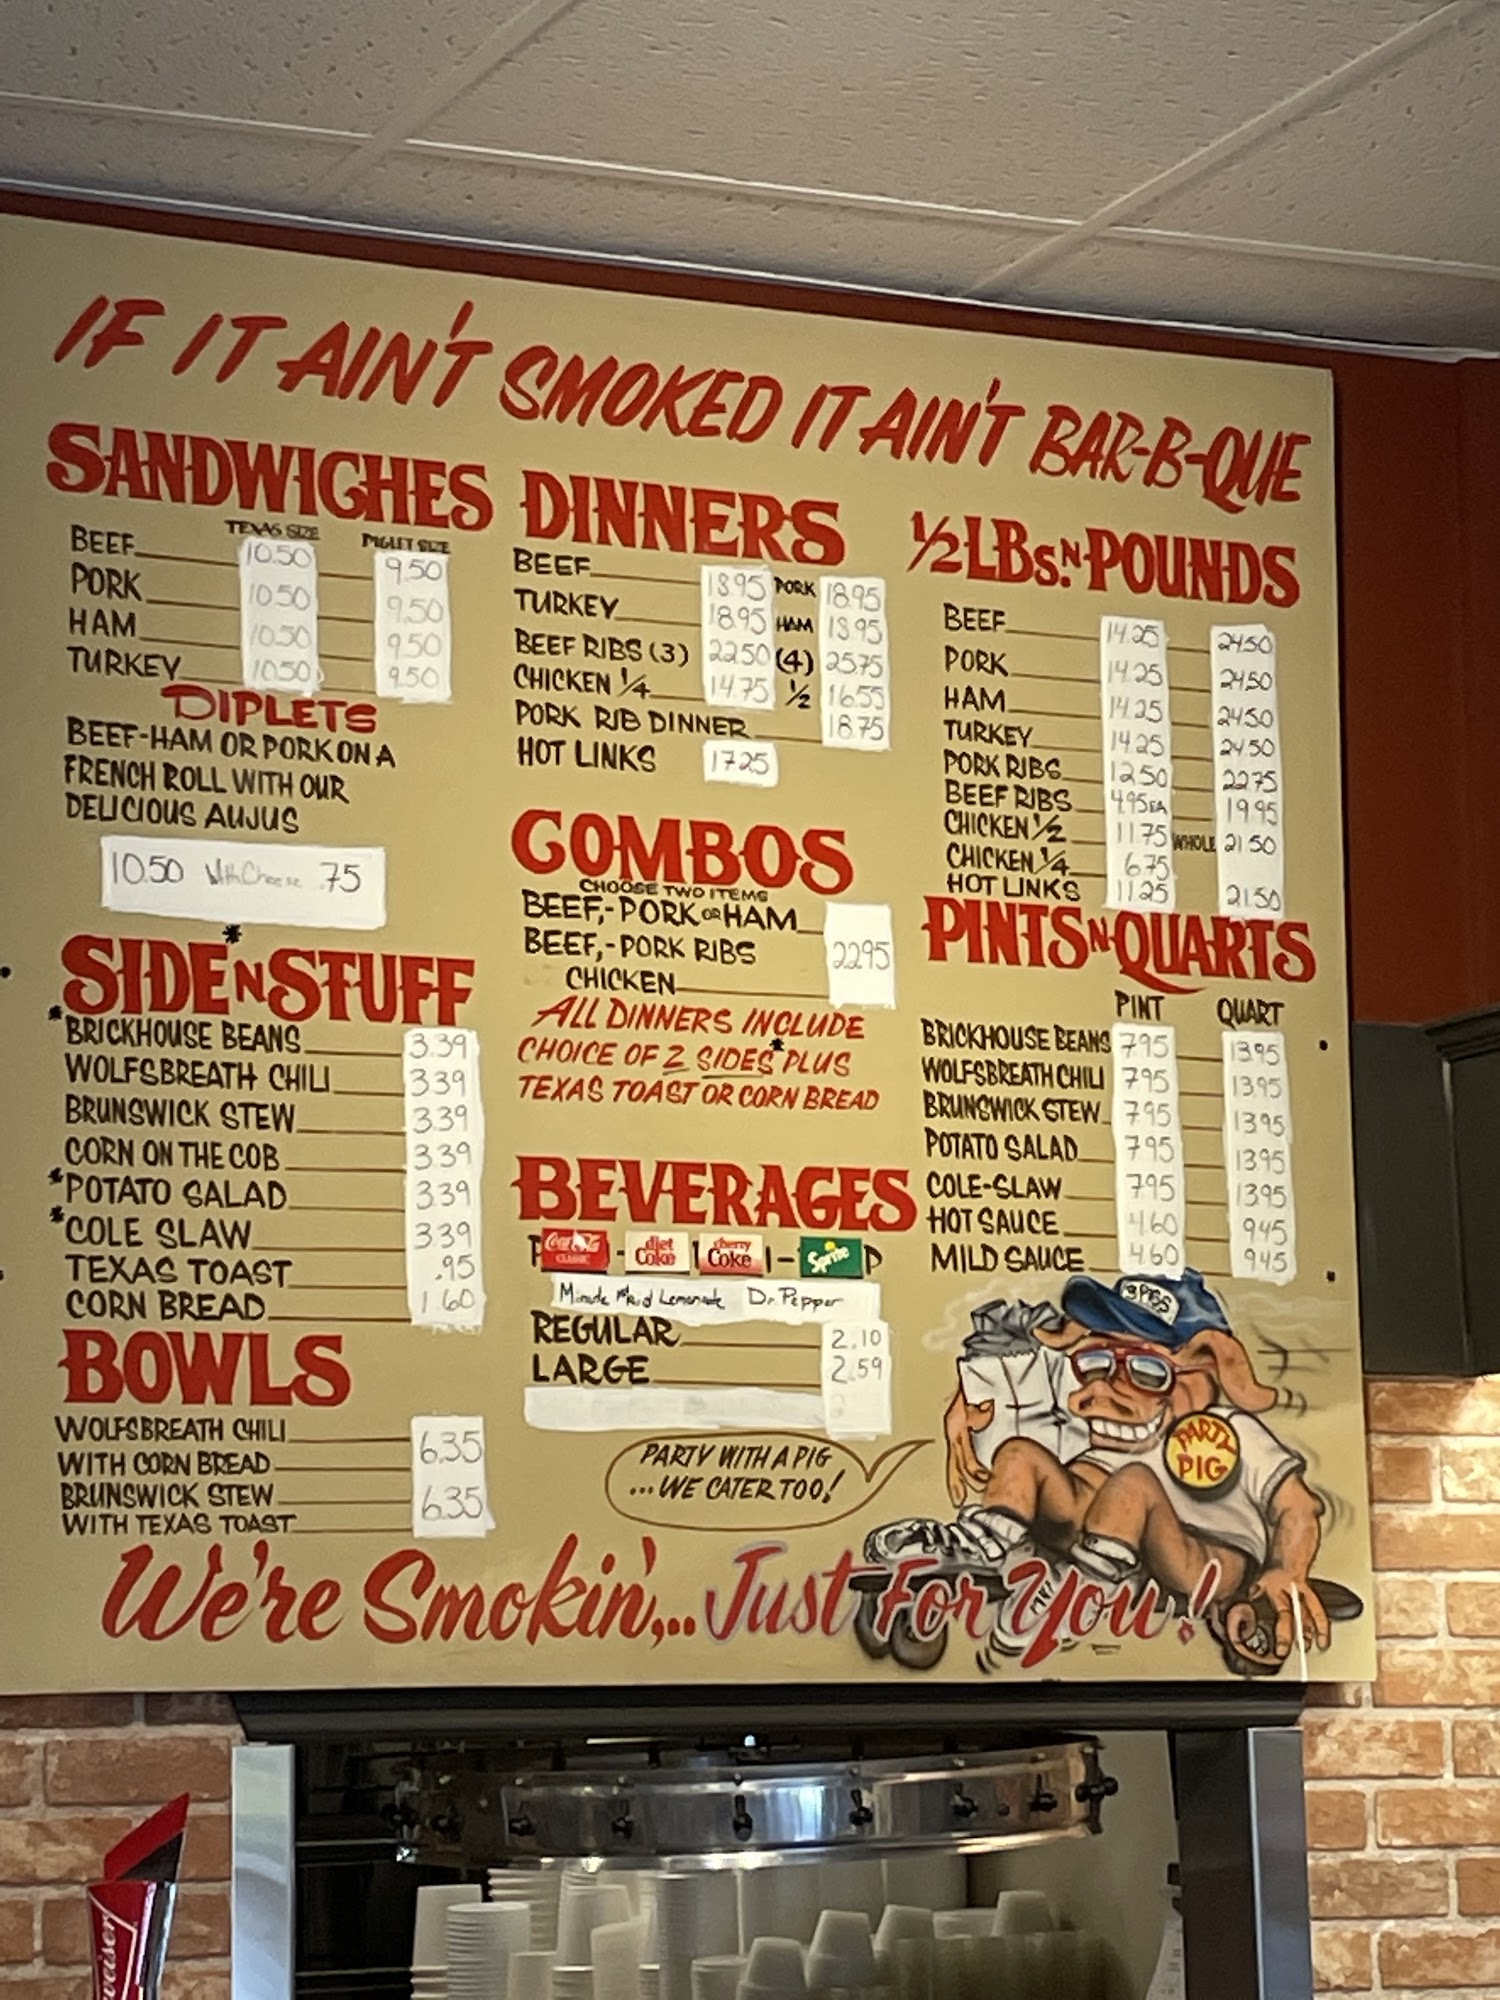 IF IT AIN'T SMOKED IT AIN'T BAR-B-QUE
SANDWICHES
TEXAS SIZE PIGLET SIZE
BEEF 10.50 9.50
PORK 10.50 9.50
HAM 10.50 9.50
TURKEY 10.50 9.50
DIPLETS
BEEF-HAM OR PORK ON A
FRENCH ROLL WITH OUR
DELICIOUS AUJUS
10.50 With Cheese .75
SIDE N STUFF*
*BRICKHOUSE BEANS 3.39
WOLFSBREATH CHILI 3.39
BRUNSWICK STEW 3.39
CORN ON THE COB 3.39
*POTATO SALAD 3.39
*COLE SLAW 3.39
TEXAS TOAST .95
CORN BREAD 1.60
BOWLS
WOLFSBREATH CHILI
WITH CORN BREAD 6.35
BRUNSWICK STEW
WITH TEXAS TOAST 6.35
DINNERS
BEEF 18.95 PORK 18.95
TURKEY 18.95 HAM 18.95
BEEF RIBS (3) 22.50 (4) 25.75
CHICKEN 1/4 14.75 1/2 16.55
PORK RIB DINNER 18.75
HOT LINKS 17.25
COMBOS
CHOOSE TWO ITEMS
BEEF,-PORK OR HAM
BEEF,-PORK RIBS 22.95
CHICKEN
ALL DINNERS INCLUDE
CHOICE OF 2 SIDES* PLUS
TEXAS TOAST OR CORN BREAD
BEVERAGES
Coca-Cola CLASSIC diet Coke cherry Coke Sprite
Minute Maid Lemonade Dr. Pepper
REGULAR 2.10
LARGE 2.59
PARTY WITH A PIG
...WE CATER TOO!
1/2 LBS. N POUNDS
BEEF 14.25 24.50
PORK 14.25 24.50
HAM 14.25 24.50
TURKEY 14.25 24.50
PORK RIBS 12.50 22.75
BEEF RIBS 4.95 EA 19.95
CHICKEN 1/2 11.75 WHOLE 21.50
CHICKEN 1/4 6.75
HOT LINKS 11.25 21.50
PINTS N QUARTS
PINT QUART
BRICKHOUSE BEANS 7.95 13.95
WOLFSBREATH CHILI 7.95 13.95
BRUNSWICK STEW 7.95 13.95
POTATO SALAD 7.95 13.95
COLE-SLAW 7.95 13.95
HOT SAUCE 4.60 9.45
MILD SAUCE 4.60 9.45
3 PIGS
PARTY
PIG
We're Smokin',... Just For You!